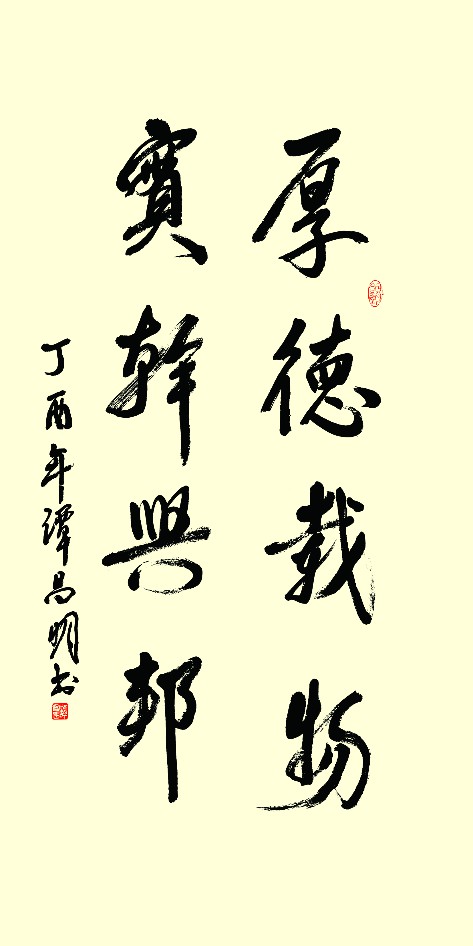 厚德載物
實幹興邦
丁酉年譚昌明书